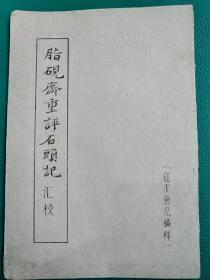 脂硯齋重評石頭記 汇校
（征求意见稿样）